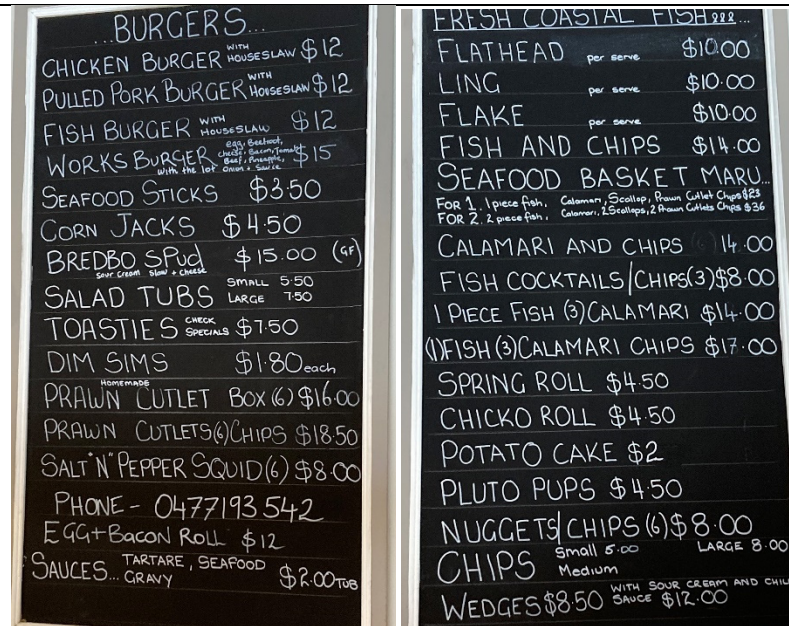 ...BURGERS...
CHICKEN BURGER WITH HOUSESLAW $12
PULLED PORK BURGER WITH HOUSESLAW $12
FISH BURGER WITH HOUSESLAW $12
WORKS BURGER egg, Beetroot, cheese, Bacon, Tomato Beef, Pineapple, onion + Sauce with the lot $15
SEAFOOD STICKS $3.50
CORN JACKS $4.50
BREDBO SPUD $15.00 (GF)
Sour Cream Slaw + Cheese
SALAD TUBS SMALL 5.50
LARGE 7.50
TOASTIES CHECK SPECIALS $7.50
DIM SIMS $1.80 each
HOMEMADE
PRAWN CUTLET BOX (6) $16.00
PRAWN CUTLETS (6) CHIPS $18.50
SALT "N" PEPPER SQUID (6) $8.00
PHONE - 0477193542
EGG + BACON ROLL $12
SAUCES... TARTARE, SEAFOOD
GRAVY $2.00 TUB
FRESH COASTAL FISH
FLATHEAD per serve $10.00
LING per serve $10.00
FLAKE per serve $10.00
FISH AND CHIPS $14.00
SEAFOOD BASKET MARU...
FOR 1. 1 piece fish, Calamari, Scallop, Prawn Cutlet Chips $23
FOR 2. 2 piece fish, Calamari, 2 Scallops, 2 Prawn Cutlets Chips $36
CALAMARI AND CHIPS 14.00
FISH COCKTAILS/CHIPS (3) $8.00
1 PIECE FISH (3) CALAMARI $14.00
(1) FISH (3) CALAMARI CHIPS $17.00
SPRING ROLL $4.50
CHICKO ROLL $4.50
POTATO CAKE $2
PLUTO PUPS $4.50
NUGGETS/CHIPS (6) $8.00
CHIPS Small 5.00 LARGE 8.00
Medium
WEDGES $8.50 WITH SOUR CREAM AND
SAUCE $12.00